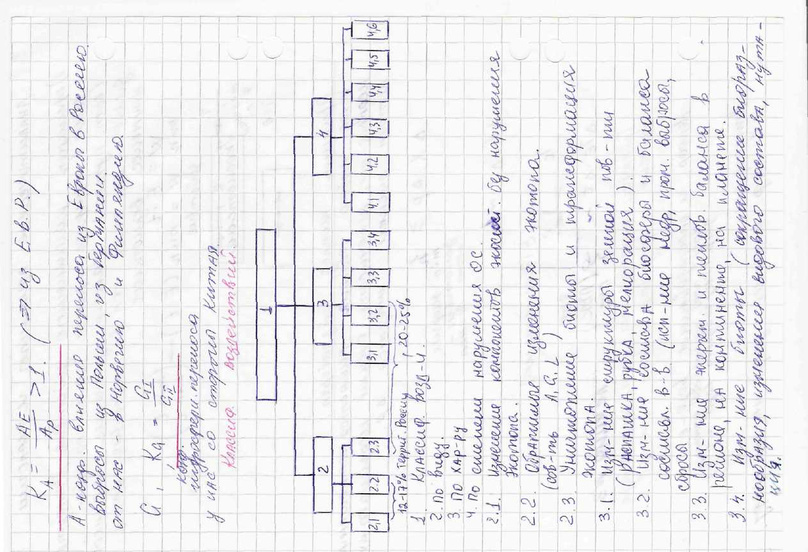 K_A = A_E / A_P > 1. (⇒ из Е в Р.)
А - коэф. влияния переноса из Европы в Россию.
выбросы из Польши, из Германии
от нас - в Норвегию и Финляндию.
G, K_G = G_I / G_II
коэф.
гидросферн. переноса
у нас со стороны Китая
Классиф. воздействий.
1
2 3 4
2.1 2.2 2.3 3.1 3.2 3.3 3.4 4.1 4.2 4.3 4.4 4.5 4.6
12-17% террит. России 20-25%
1. Классиф. возд-й.
2. По виду.
3. По хар-ру
4. По степени нарушения ОС.
2.1. Изменение компонентов экосист. без нарушения
экотопа.
2.2. Обратимые изменения экотопа.
(сов-ть A, G, L)
2.3. Уничтожение биоты и трансформация
экотопа.
3.1. Изм-ние структуры земной пов-ти
(распашка, рубка, мелиорация).
3.2. Изм-ние состава биосферы и баланса
составл. в-в (исп-ние недр, пром. выбросы,
сбросы
3.3. Изм-ние энергет. и теплов. баланса в
регионе, на континенте, на планете.
3.4. Изм-ние биоты (сокращение биораз-
нообразия, изменение видового состава, мута-
ция.